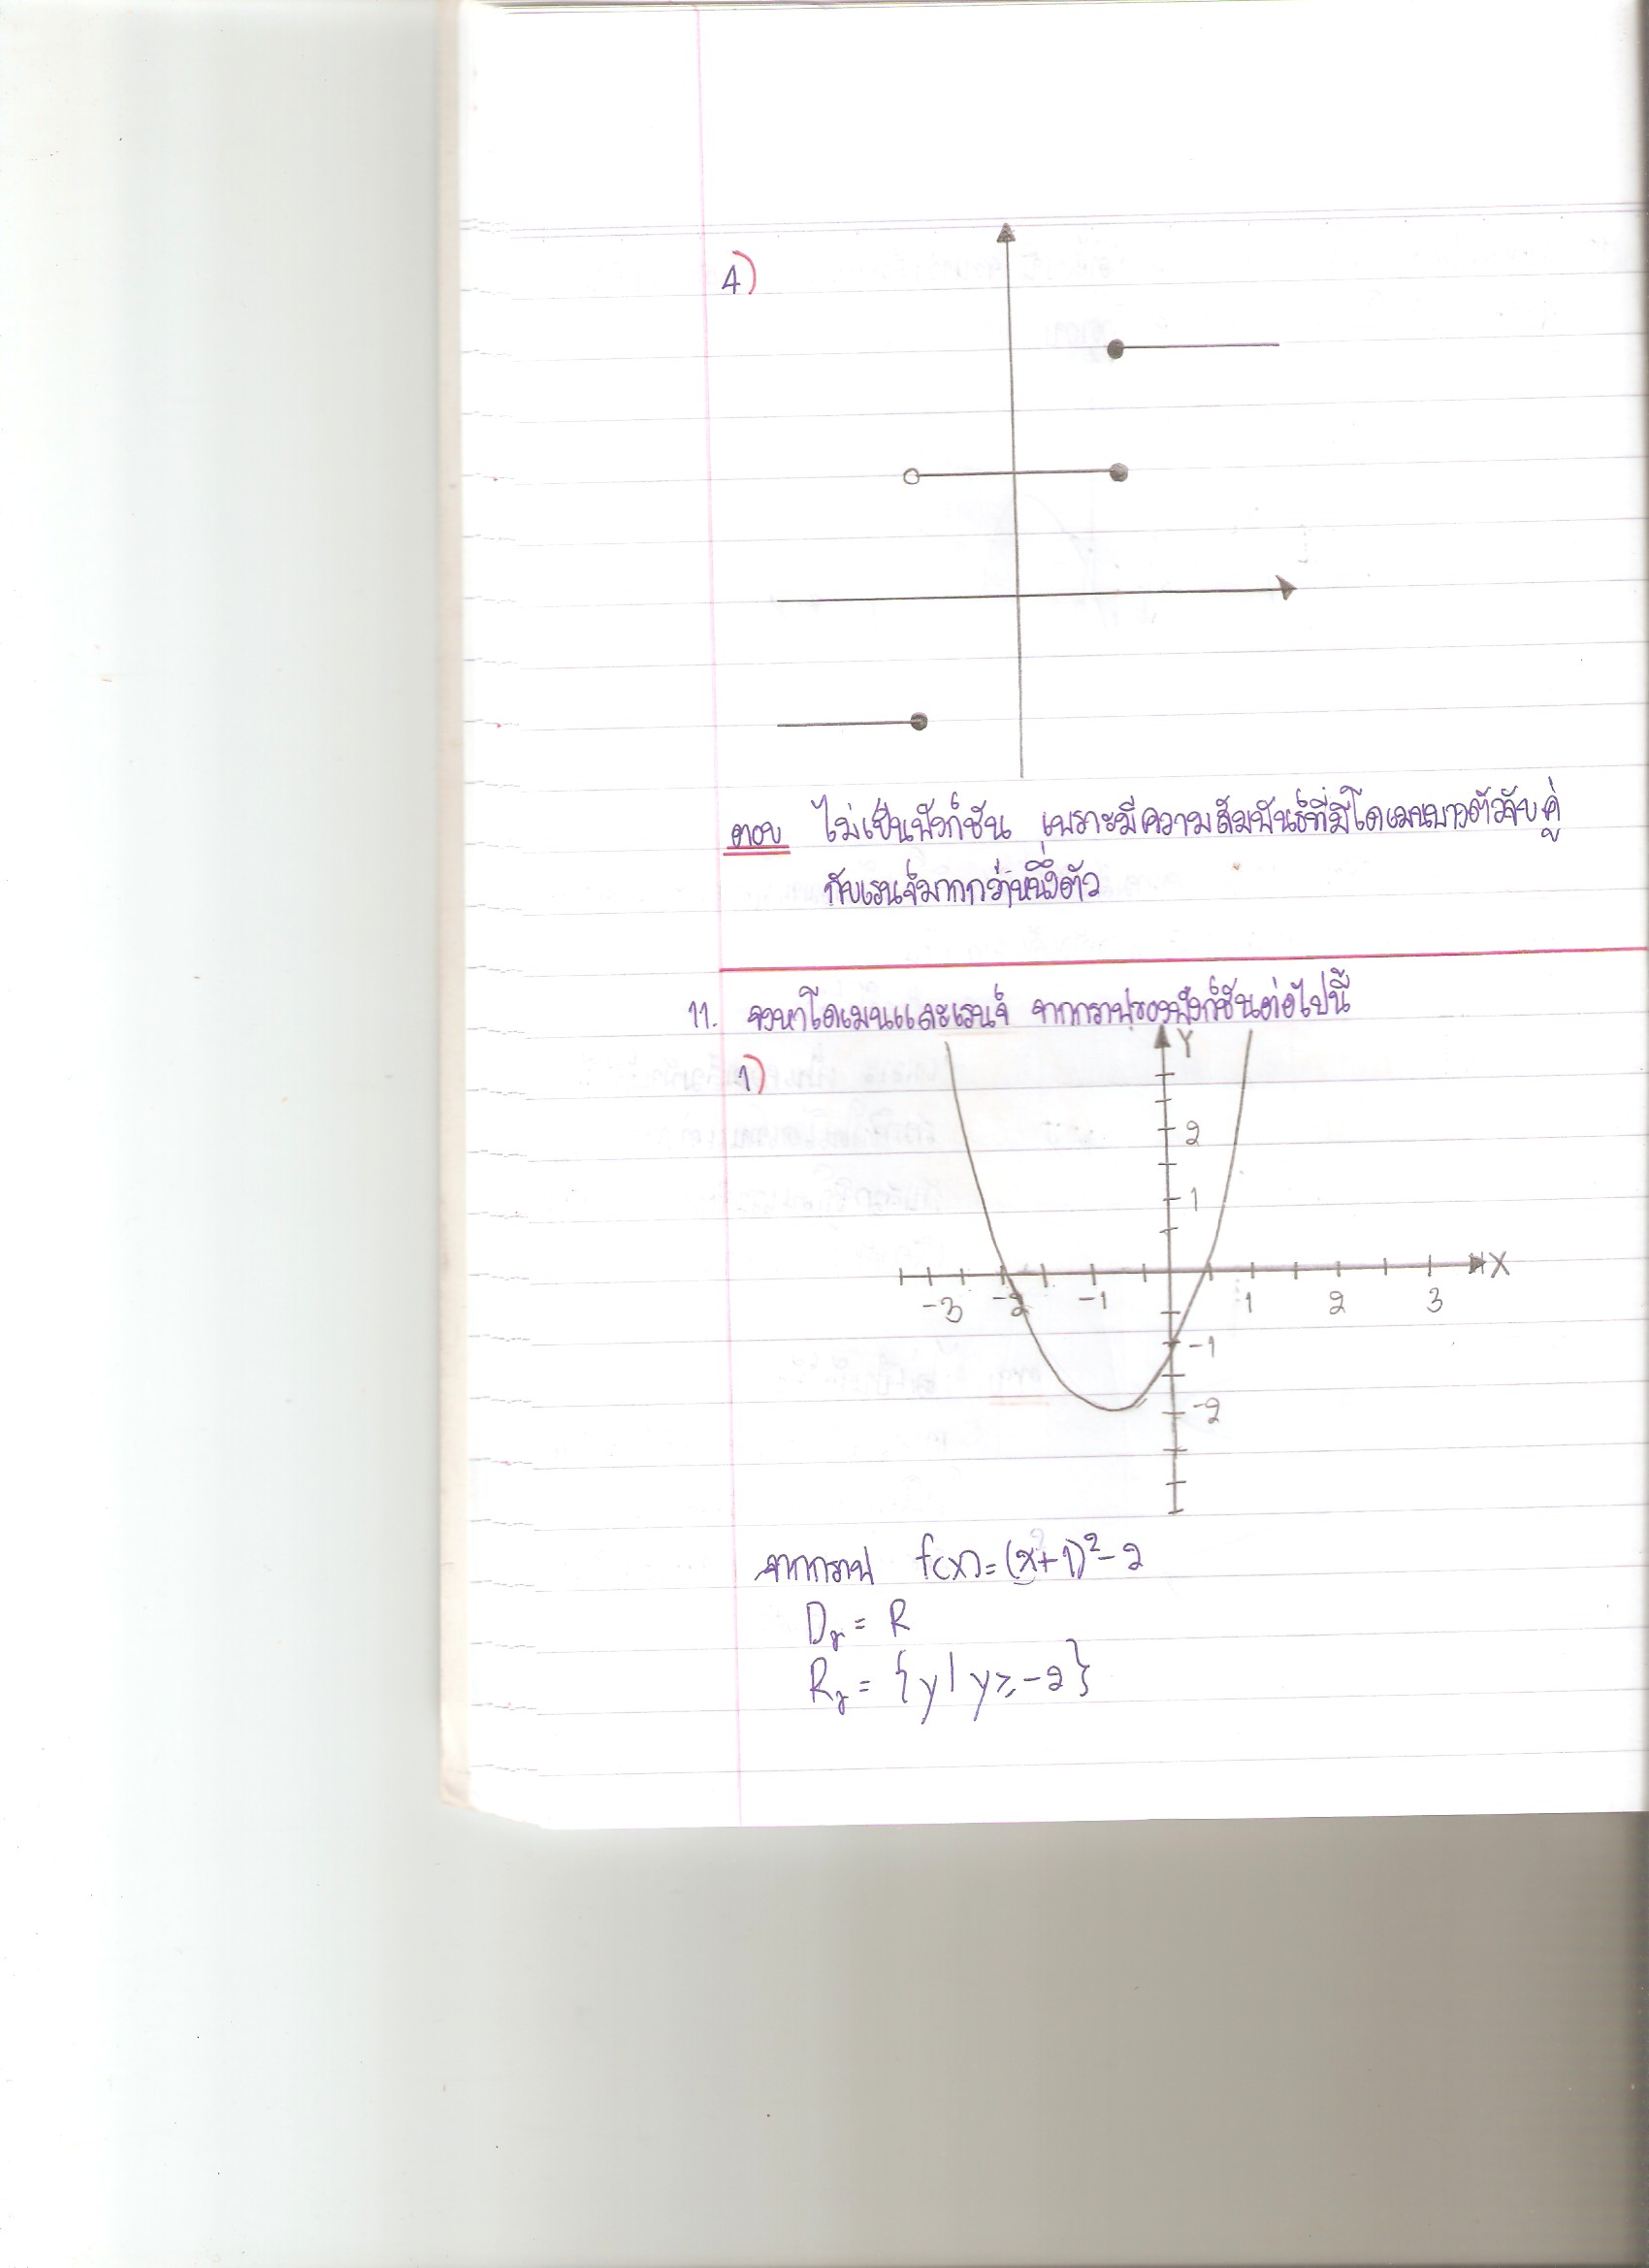 4)
ตอบ ไม่เป็นฟังก์ชัน เพราะมีความสัมพันธ์ที่มีโดเมนบางตัวจับคู่
กับเรนจ์มากกว่าหนึ่งตัว
11. จงหาโดเมนและเรนจ์ จากกราฟของฟังก์ชันต่อไปนี้
1)
Y
2
1
X
-3 -2 -1 1 2 3
-1
-2
จากกราฟ f(x) = (x+1)²-2
Dr = R
Rr = {y | y ≥ -2}